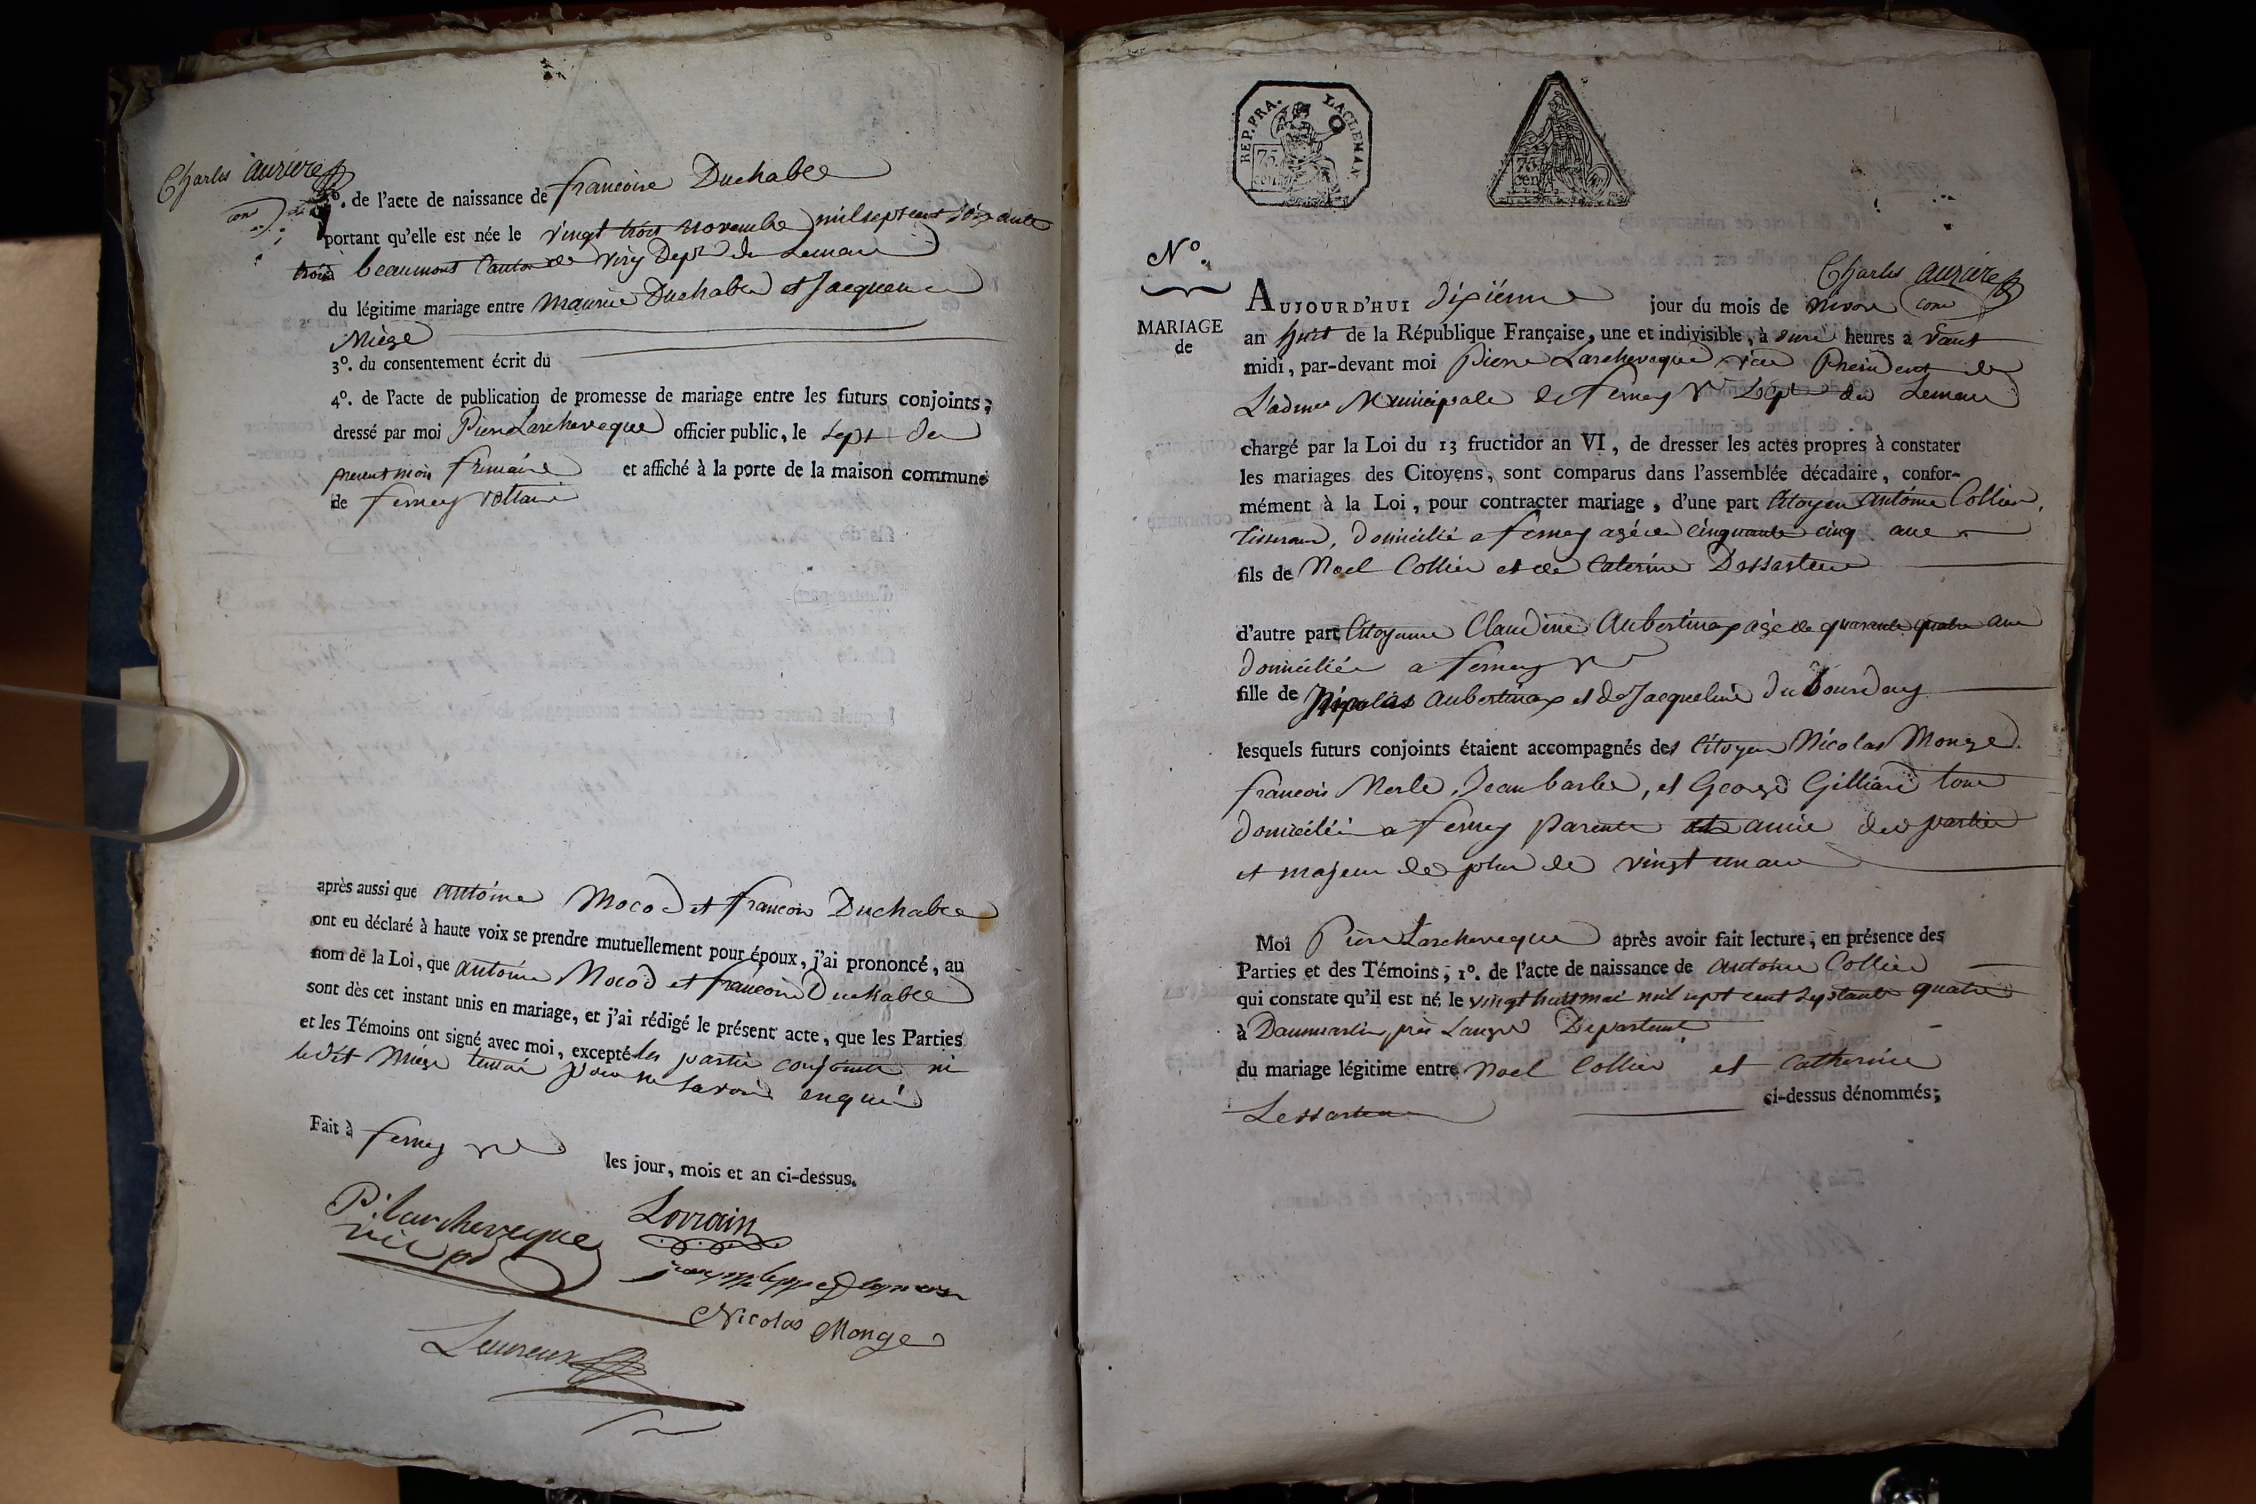 Charles auziere
2º. de l'acte de naissance de francoise Duchable
portant qu'elle est née le vingt trois novembre milseptcent soixante
trois beaumont Canton de Viry Dept du Leman
du légitime mariage entre maurice Duchable et Jacquemine
Miège
3º. du consentement écrit du
4º. de l'acte de publication de promesse de mariage entre les futurs conjoints;
dressé par moi Pierre Larcheveque officier public, le sept du
present mois frimaire et affiché à la porte de la maison commune
de ferney voltaire
après aussi que antoine Mocod et francoise Duchable
ont eu déclaré à haute voix se prendre mutuellement pour époux, j'ai prononcé, au
nom de la Loi, que antoine Mocod et francoise Duchable
sont dès cet instant unis en mariage, et j'ai rédigé le présent acte, que les Parties
et les Témoins ont signé avec moi, excepté les partie conjointe ni
ledit Miège temoin pour ne savoir enquis
Fait à ferney les jour, mois et an ci-dessus.
P. Larcheveque
vice pdt
Lorrain
Nicolas Monge
REP. FRA. 75. cen. LAC LEMAN
75 cen
Nº.
MARIAGE
de
Charles auziere
AUJOURD'HUI dixiéme jour du mois de nivose
an huit de la République Française, une et indivisible, à onze heures a vant
midi, par-devant moi Pierre Larcheveque vice President de
L'admon Municipale de ferney Vre Dept du Leman
chargé par la Loi du 13 fructidor an VI, de dresser les actes propres à constater
les mariages des Citoyens, sont comparus dans l'assemblée décadaire, confor-
mément à la Loi, pour contracter mariage, d'une part Citoyen antoine Collier,
tisseran, domicilié a ferney agé de cinquante cinq ans
fils de Noel Collier et de Caterine Dessarteau
d'autre part Citoyenne Claudine Aubertinax agé de quarante quatre ans
domiciliée a ferney
fille de Nicolas aubertinax et de Jacqueline du bourday
lesquels futurs conjoints étaient accompagnés des Citoyen Nicolas Monge.
francois Merle, Jean barbe, et George Gilliard tous
domicilié a ferney parents et amis des partie
et majeur de plus de vingt un ans
Moi Pierre Larcheveque après avoir fait lecture, en présence des
Parties et des Témoins, 1º. de l'acte de naissance de antoine Collier
qui constate qu'il est né le vingt huit mai mil sept cent septante quatre
à Daumartin, près Langre Departemt
du mariage légitime entre Noel Collier et Catherine
Lessarteau ci-dessus dénommés;